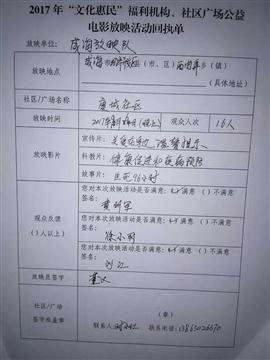 2017年“文化惠民”福利机构、社区广场公益
电影放映活动回执单
放映单位: 威海放映队
放映地点 威海市 (市、区) (乡)镇
社区/广场名称 社区
放映时间 2017年 月 日(晚上) 观众人次 16人
放映影片
宣传片: 关爱 温馨提示
科教片: 健康促进和疾病预防
故事片: 生死96小时
观众反馈
(3人以上)
您对本次放映活动是否满意: (✓)满意 ( )不满意
签名: 黄
您对本次放映活动是否满意: (✓)满意 ( )不满意
签名: 徐小
您对本次放映活动是否满意: (✓)满意 ( )不满意
签名: 刘江
放映员签字
社区/广场
签字或盖章
(章)
联系人: 电话: 13863026670